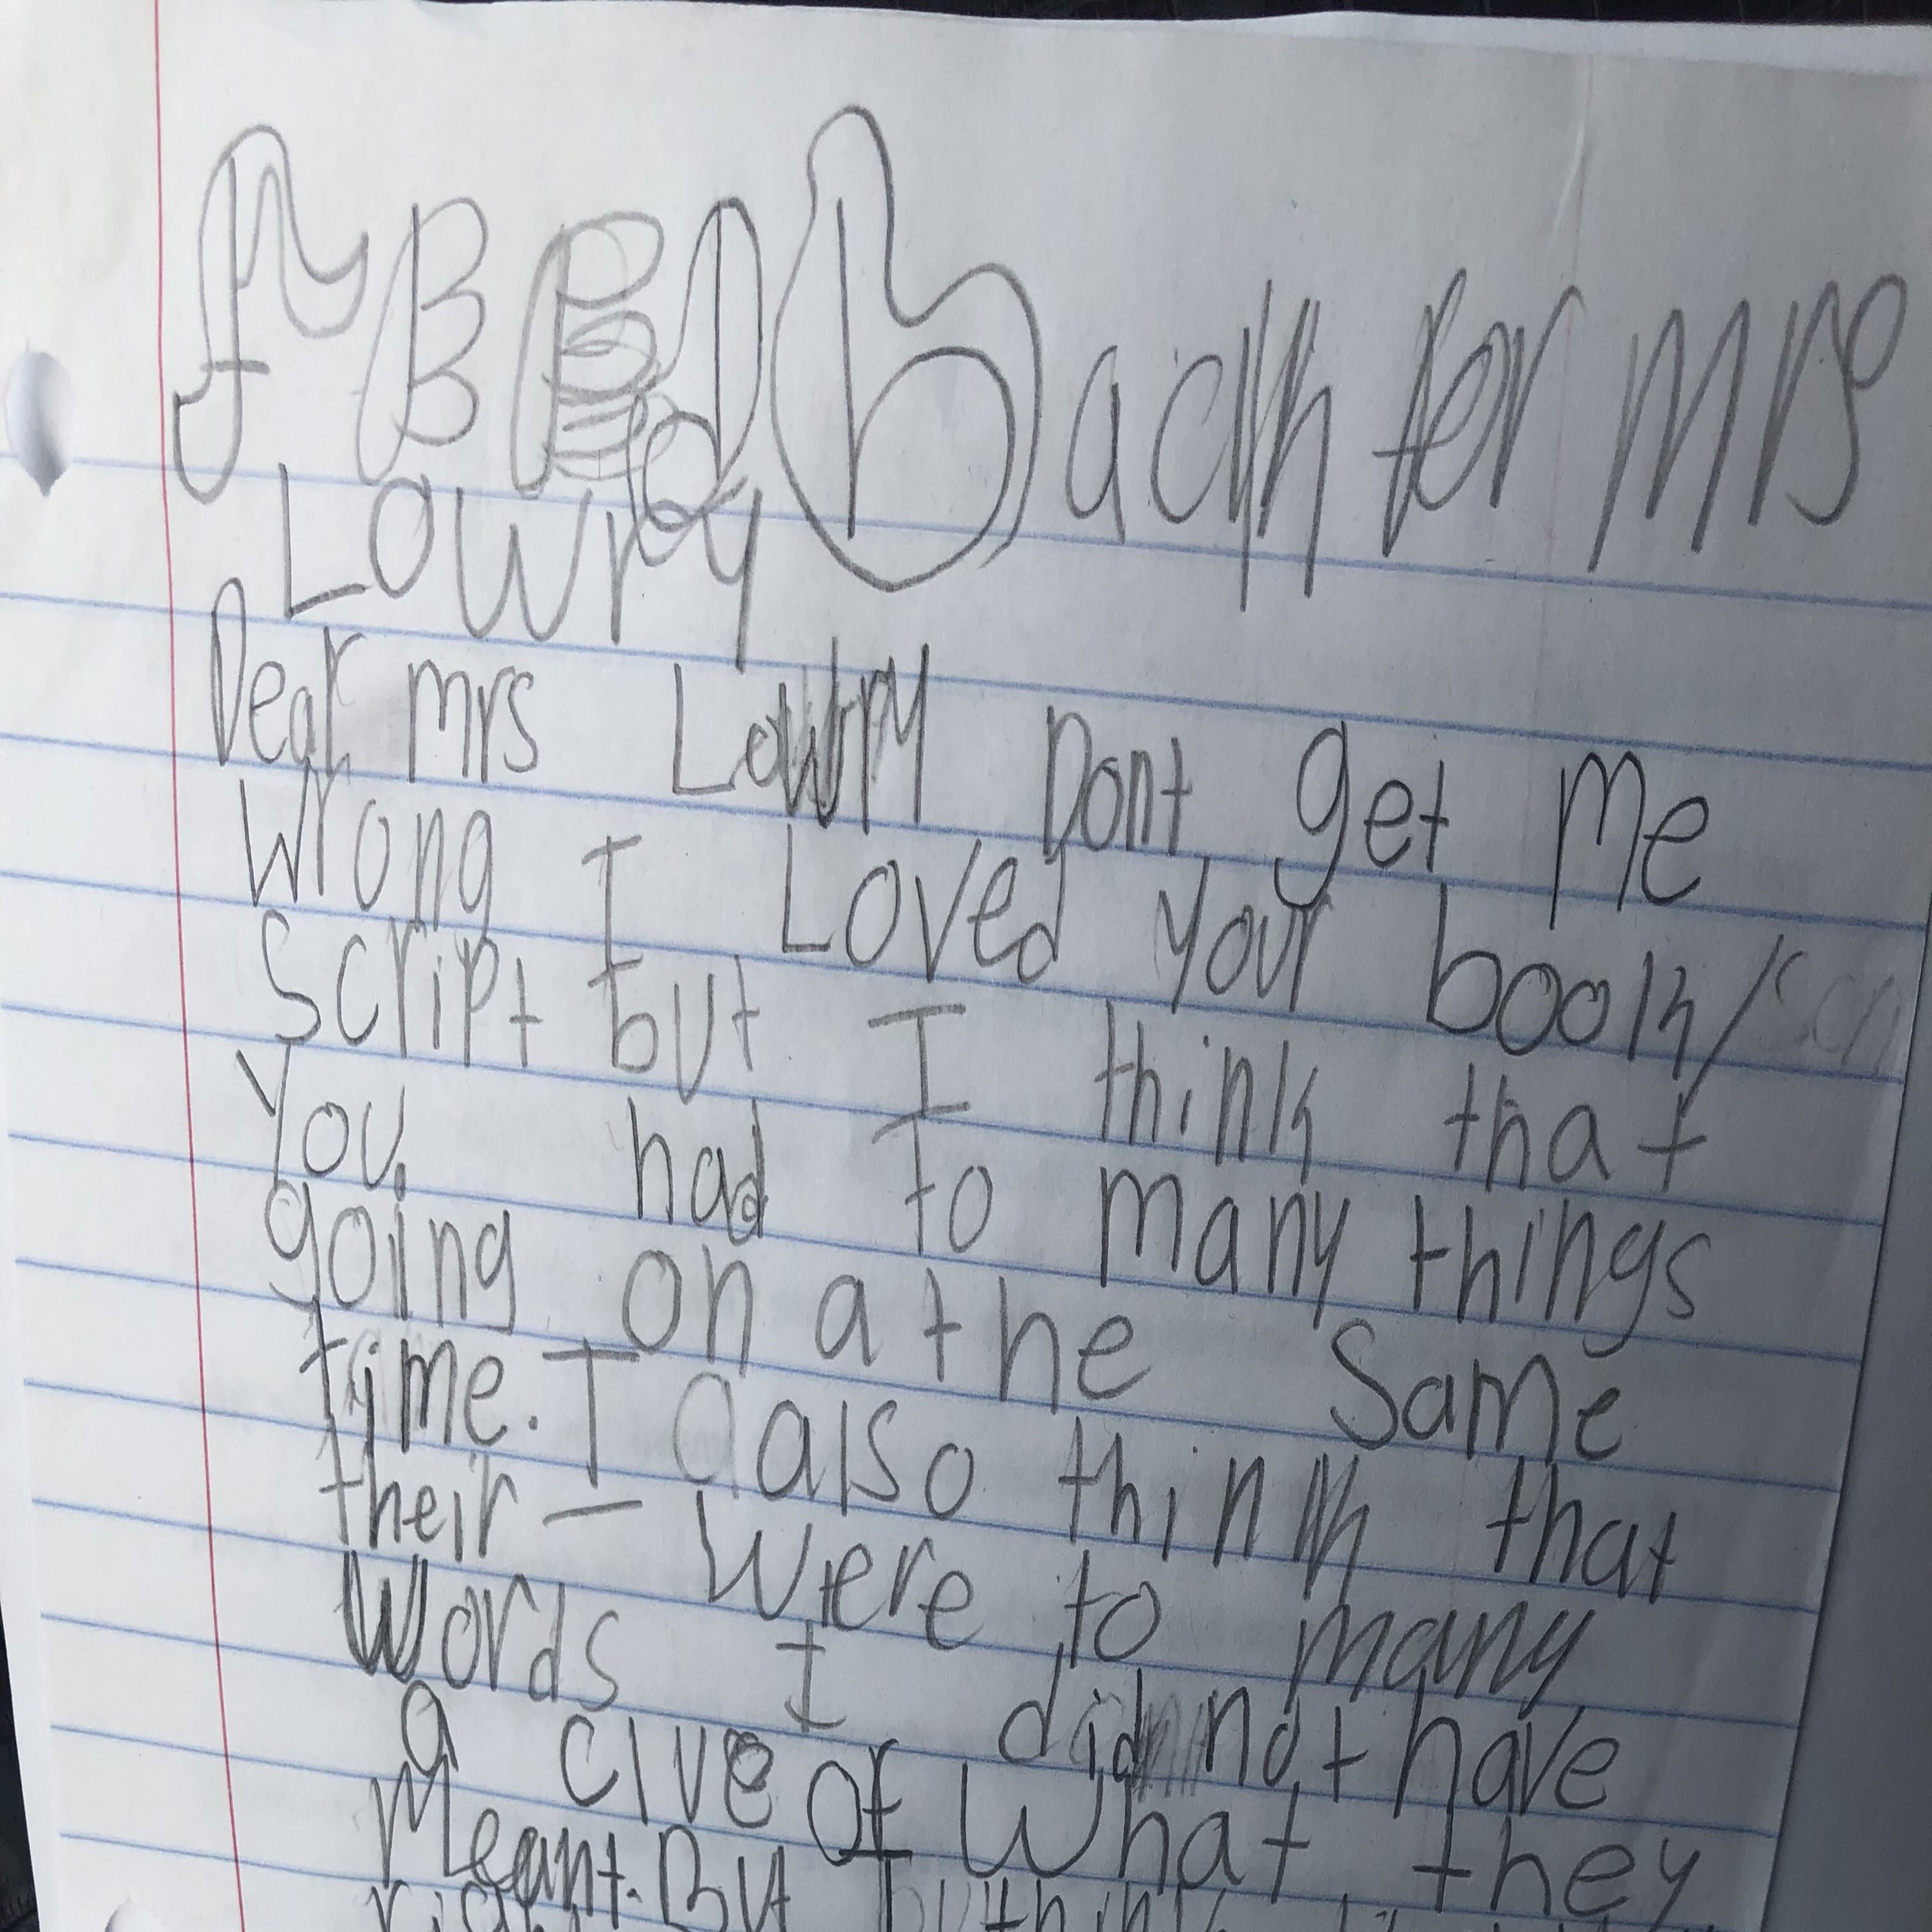 fEEdback for mrs
Lowry
Dear mrs Lowry Dont get me
wrong I Loved your book/
Script but I think that
you had to many things
going on a the Same
time. I also think that
their — were to many
words I did not have
a clue of what they
Meant. But I think